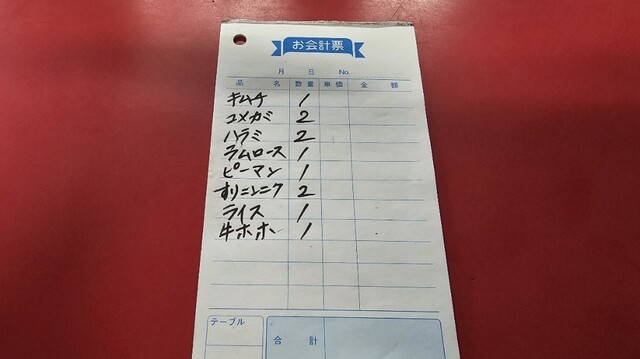 お会計票
月 日 No.
品 名 数量 単価 金 額
キムチ 1
コメカミ 2
ハラミ 2
ラムロース 1
ピーマン 1
すりニンニク 2
ライス 1
牛ホホ 1
テーブル
合 計